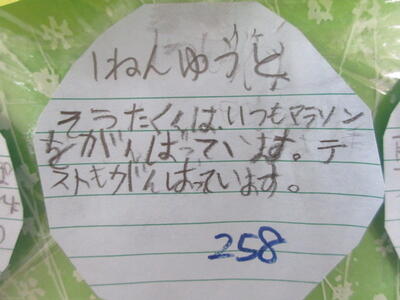 1ねんゆうと
そうたくんは、いつもマラソン
をがんばっています。テ
ストもがんばっています。
258